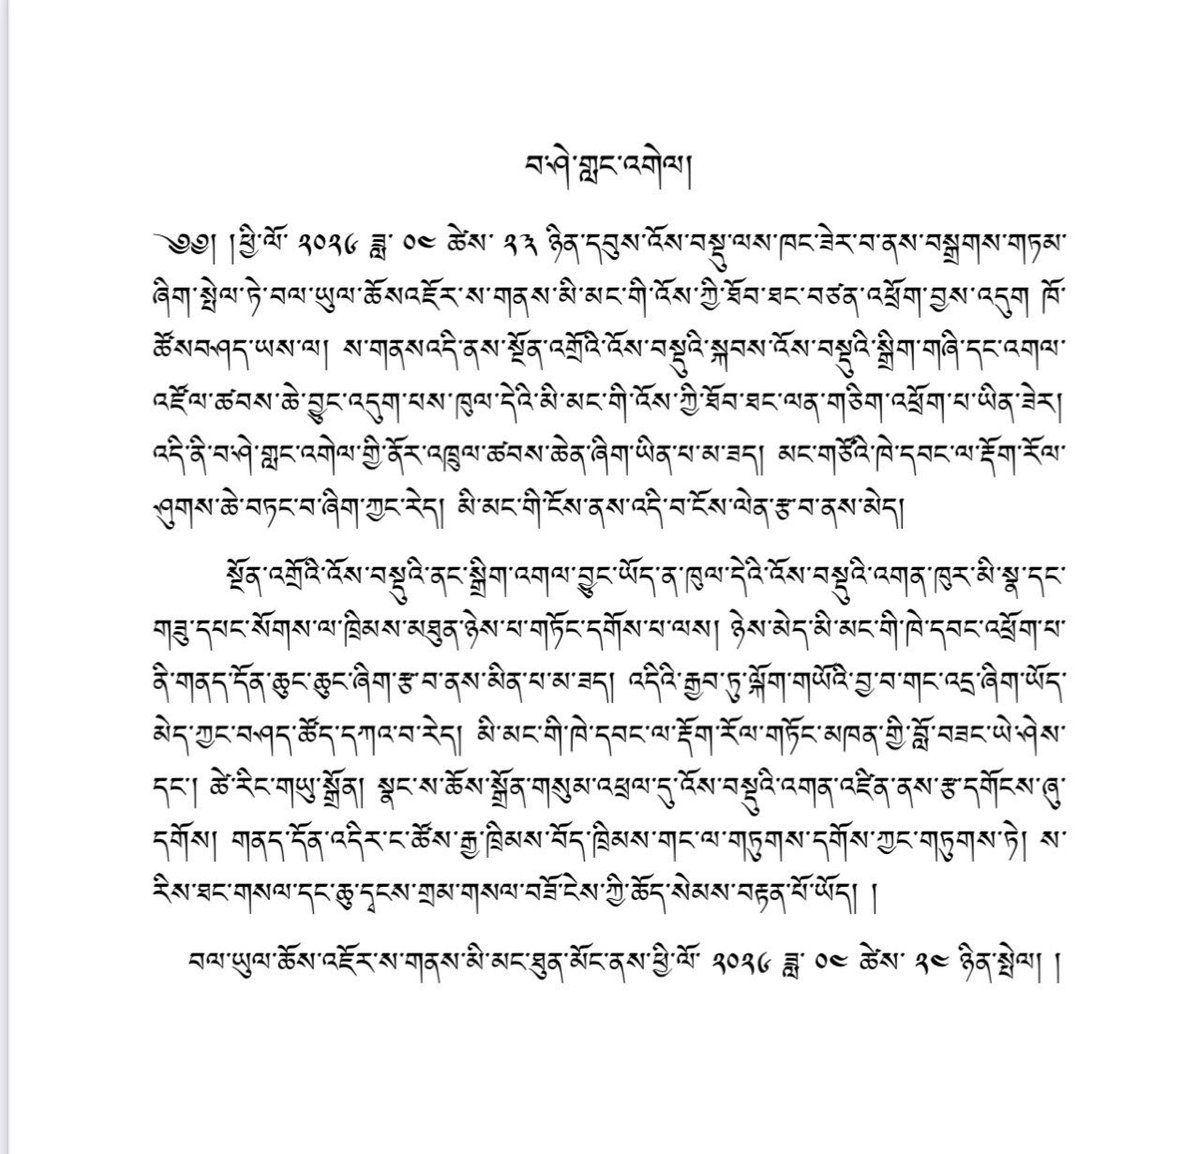 བ་ཤེ་གླང་འགེལ།
༄༅། །ཕྱི་ལོ་ ༢༠༢༦ ཟླ་ ༠༤ ཚེས་ ༢༣ ཉིན་དབུས་འོས་བསྡུ་ལས་ཁང་ཟེར་བ་ནས་བསྒྲགས་གཏམ་
ཞིག་སྤེལ་ཏེ་བལ་ཡུལ་ཆོས་འཛོར་ས་གནས་མི་མང་གི་འོས་ཀྱི་ཐོབ་ཐང་བཙན་འཕྲོག་བྱས་འདུག ཁོ་
ཚོས་བཤད་ཡས་ལ། ས་གནས་འདི་ནས་སྔོན་འགྲོའི་འོས་བསྡུའི་སྐབས་འོས་བསྡུའི་སྒྲིག་གཞི་དང་འགལ་
འཛོལ་ཚབས་ཆེ་བྱུང་འདུག་པས་ཁུལ་དེའི་མི་མང་གི་འོས་ཀྱི་ཐོབ་ཐང་ལན་གཅིག་འཕྲོག་པ་ཡིན་ཟེར།
འདི་ནི་བ་ཤེ་གླང་འགེལ་གྱི་ནོར་འཁྲུལ་ཚབས་ཆེན་ཞིག་ཡིན་པ་མ་ཟད། མང་གཙོའི་ཁེ་དབང་ལ་རྡོག་རོལ་
ཤུགས་ཆེ་བཏང་བ་ཞིག་ཀྱང་རེད། མི་མང་གི་ངོས་ནས་འདི་བ་ངོས་ལེན་རྩ་བ་ནས་མེད།
སྔོན་འགྲོའི་འོས་བསྡུའི་ནང་སྒྲིག་འགལ་བྱུང་ཡོད་ན་ཁུལ་དེའི་འོས་བསྡུའི་འགན་ཁུར་མི་སྣ་དང་
གཟུ་དཔང་སོགས་ལ་ཁྲིམས་མཐུན་ཉེས་པ་གཏོང་དགོས་པ་ལས། ཉེས་མེད་མི་མང་གི་ཁེ་དབང་འཕྲོག་པ་
ནི་གནད་དོན་ཆུང་ཆུང་ཞིག་རྩ་བ་ནས་མིན་པ་མ་ཟད། འདིའི་རྒྱབ་ཏུ་ལྐོག་གཡོའི་བྱ་བ་གང་འདྲ་ཞིག་ཡོད་
མེད་ཀྱང་བཤད་ཚོད་དཀའ་བ་རེད། མི་མང་གི་ཁེ་དབང་ལ་རྡོག་རོལ་གཏོང་མཁན་གྱི་བློ་བཟང་ཡེ་ཤེས་
དང་། ཚེ་རིང་གཡུ་སྒྲོན། སྣང་ས་ཆོས་སྒྲོན་གསུམ་འཕྲལ་དུ་འོས་བསྡུའི་འགན་འཛིན་ནས་རྩ་དགོངས་ཞུ་
དགོས། གནད་དོན་འདིར་ང་ཚོས་རྒྱ་ཁྲིམས་བོད་ཁྲིམས་གང་ལ་གཏུགས་དགོས་ཀྱང་གཏུགས་ཏེ། ས་
རིས་ཐང་གསལ་དང་ཆུ་དྭངས་གྲམ་གསལ་བཟོ་ངེས་ཀྱི་ཆོད་སེམས་བརྟན་པོ་ཡོད། །
བལ་ཡུལ་ཆོས་འཛོར་ས་གནས་མི་མང་ཐུན་མོང་ནས་ཕྱི་ལོ་ ༢༠༢༦ ཟླ་ ༠༤ ཚེས་ ༢༤ ཉིན་སྤེལ། །